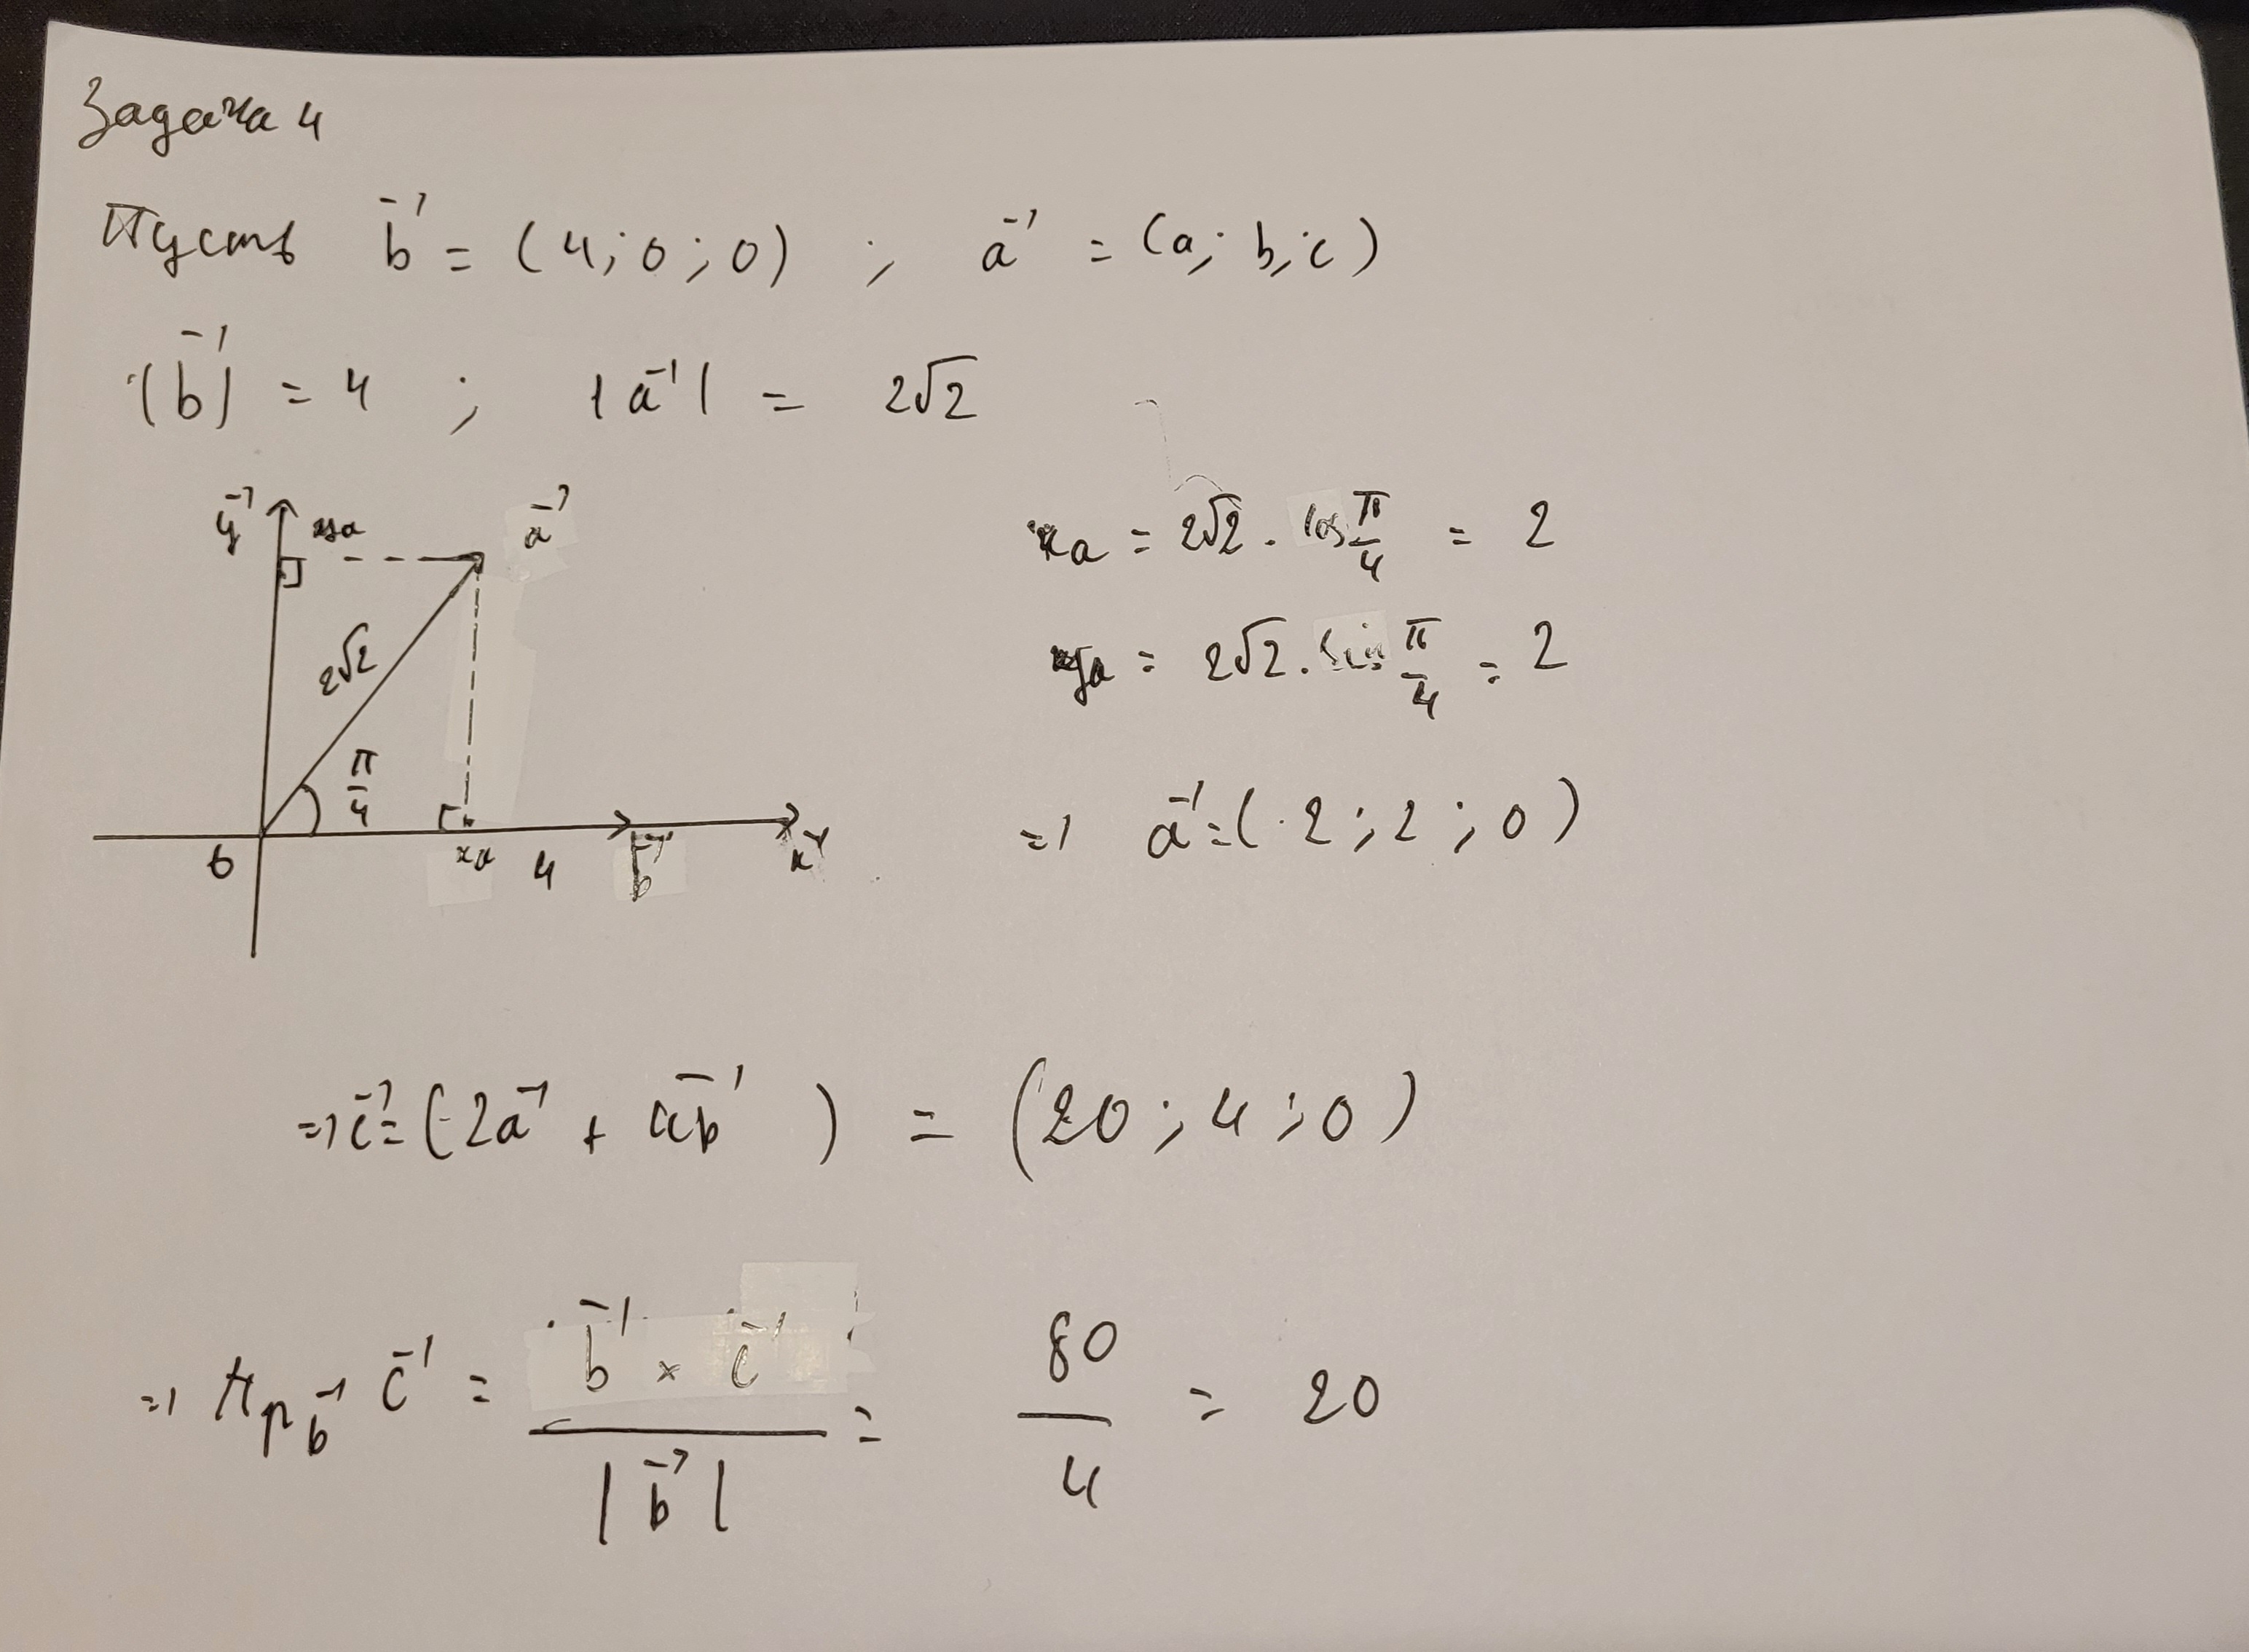 Задача 4
Пусть b⃗ = (4; 0; 0) ; a⃗ = (a; b; c)
|b⃗| = 4 ; |a⃗| = 2√2
y⃗ ya a⃗
2√2
π/4
0 xa 4 b⃗ x⃗
xa = 2√2 · cos π/4 = 2
ya = 2√2 · sin π/4 = 2
=> a⃗ = (2; 2; 0)
=> c⃗ = (2a⃗ + 4b⃗) = (20; 4; 0)
=> Пр b⃗ c⃗ = b⃗ × c⃗ / |b⃗| = 80/4 = 20